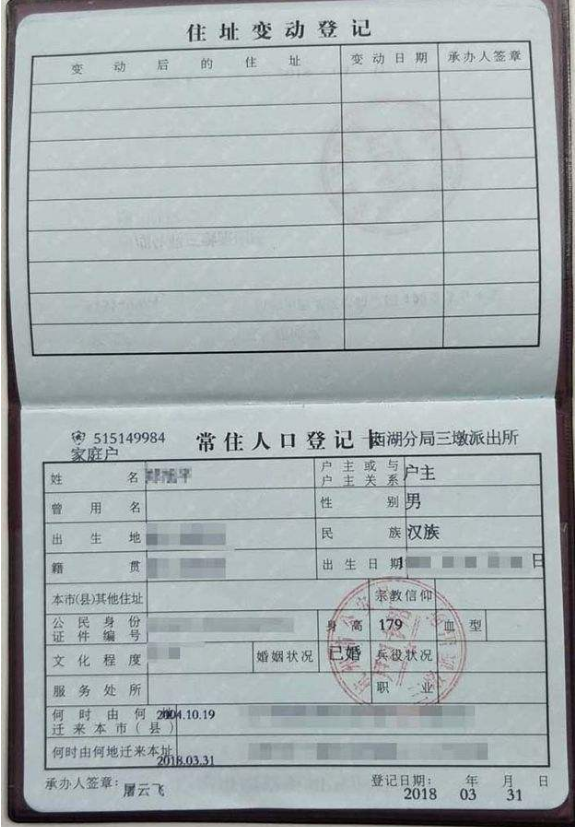 住址变动登记
变动后的住址 变动日期 承办人签章
515149984 常住人口登记卡 西湖分局三墩派出所
家庭户
姓名 户主或与户主关系 户主
曾用名 性别 男
出生地 民族 汉族
籍贯 出生日期 日
本市(县)其他住址 宗教信仰
公民身份证件编号 身高 179 血型
文化程度 婚姻状况 已婚 兵役状况
服务处所 职业
何时由何地迁来本市(县) 2004.10.19
何时由何地迁来本址 2018.03.31
承办人签章: 屠云飞 登记日期: 年 月 日
2018 03 31